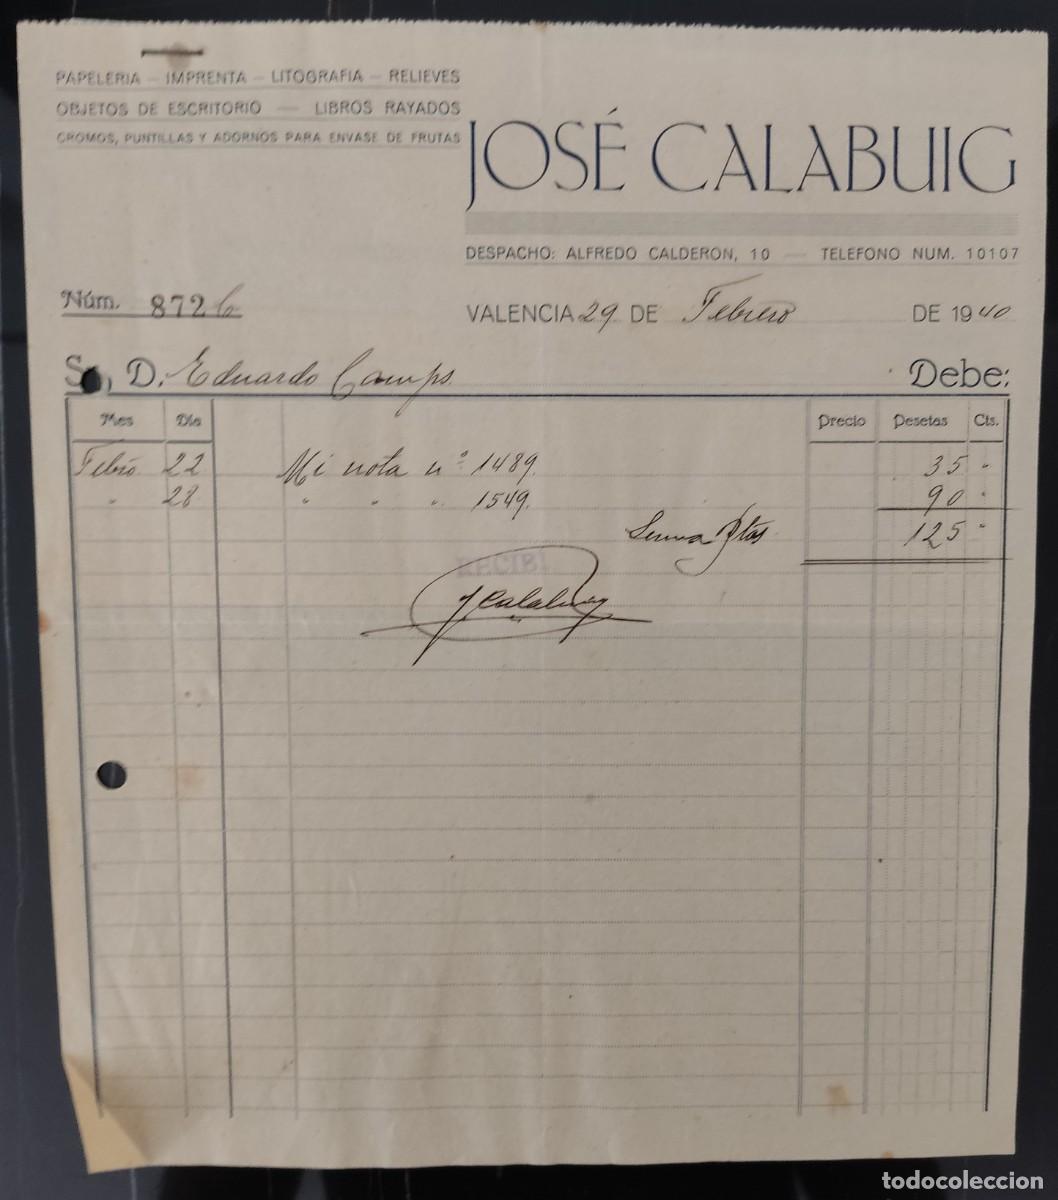 PAPELERIA — IMPRENTA — LITOGRAFIA — RELIEVES
OBJETOS DE ESCRITORIO — LIBROS RAYADOS
CROMOS, PUNTILLAS Y ADORNOS PARA ENVASE DE FRUTAS
JOSÉ CALABUIG
DESPACHO: ALFREDO CALDERON, 10 — TELEFONO NUM. 10107
Núm. 8726
VALENCIA 29 DE Febrero DE 1940
Sr. D. Eduardo Camps. Debe:
Mes Día Precio Pesetas Cts.
Febro. 22 Mi nota nº 1489. 35 "
" 28 " " " 1549. 90 "
Suma Ptas 125 "
RECIBÍ
J Calabuig
todocoleccion